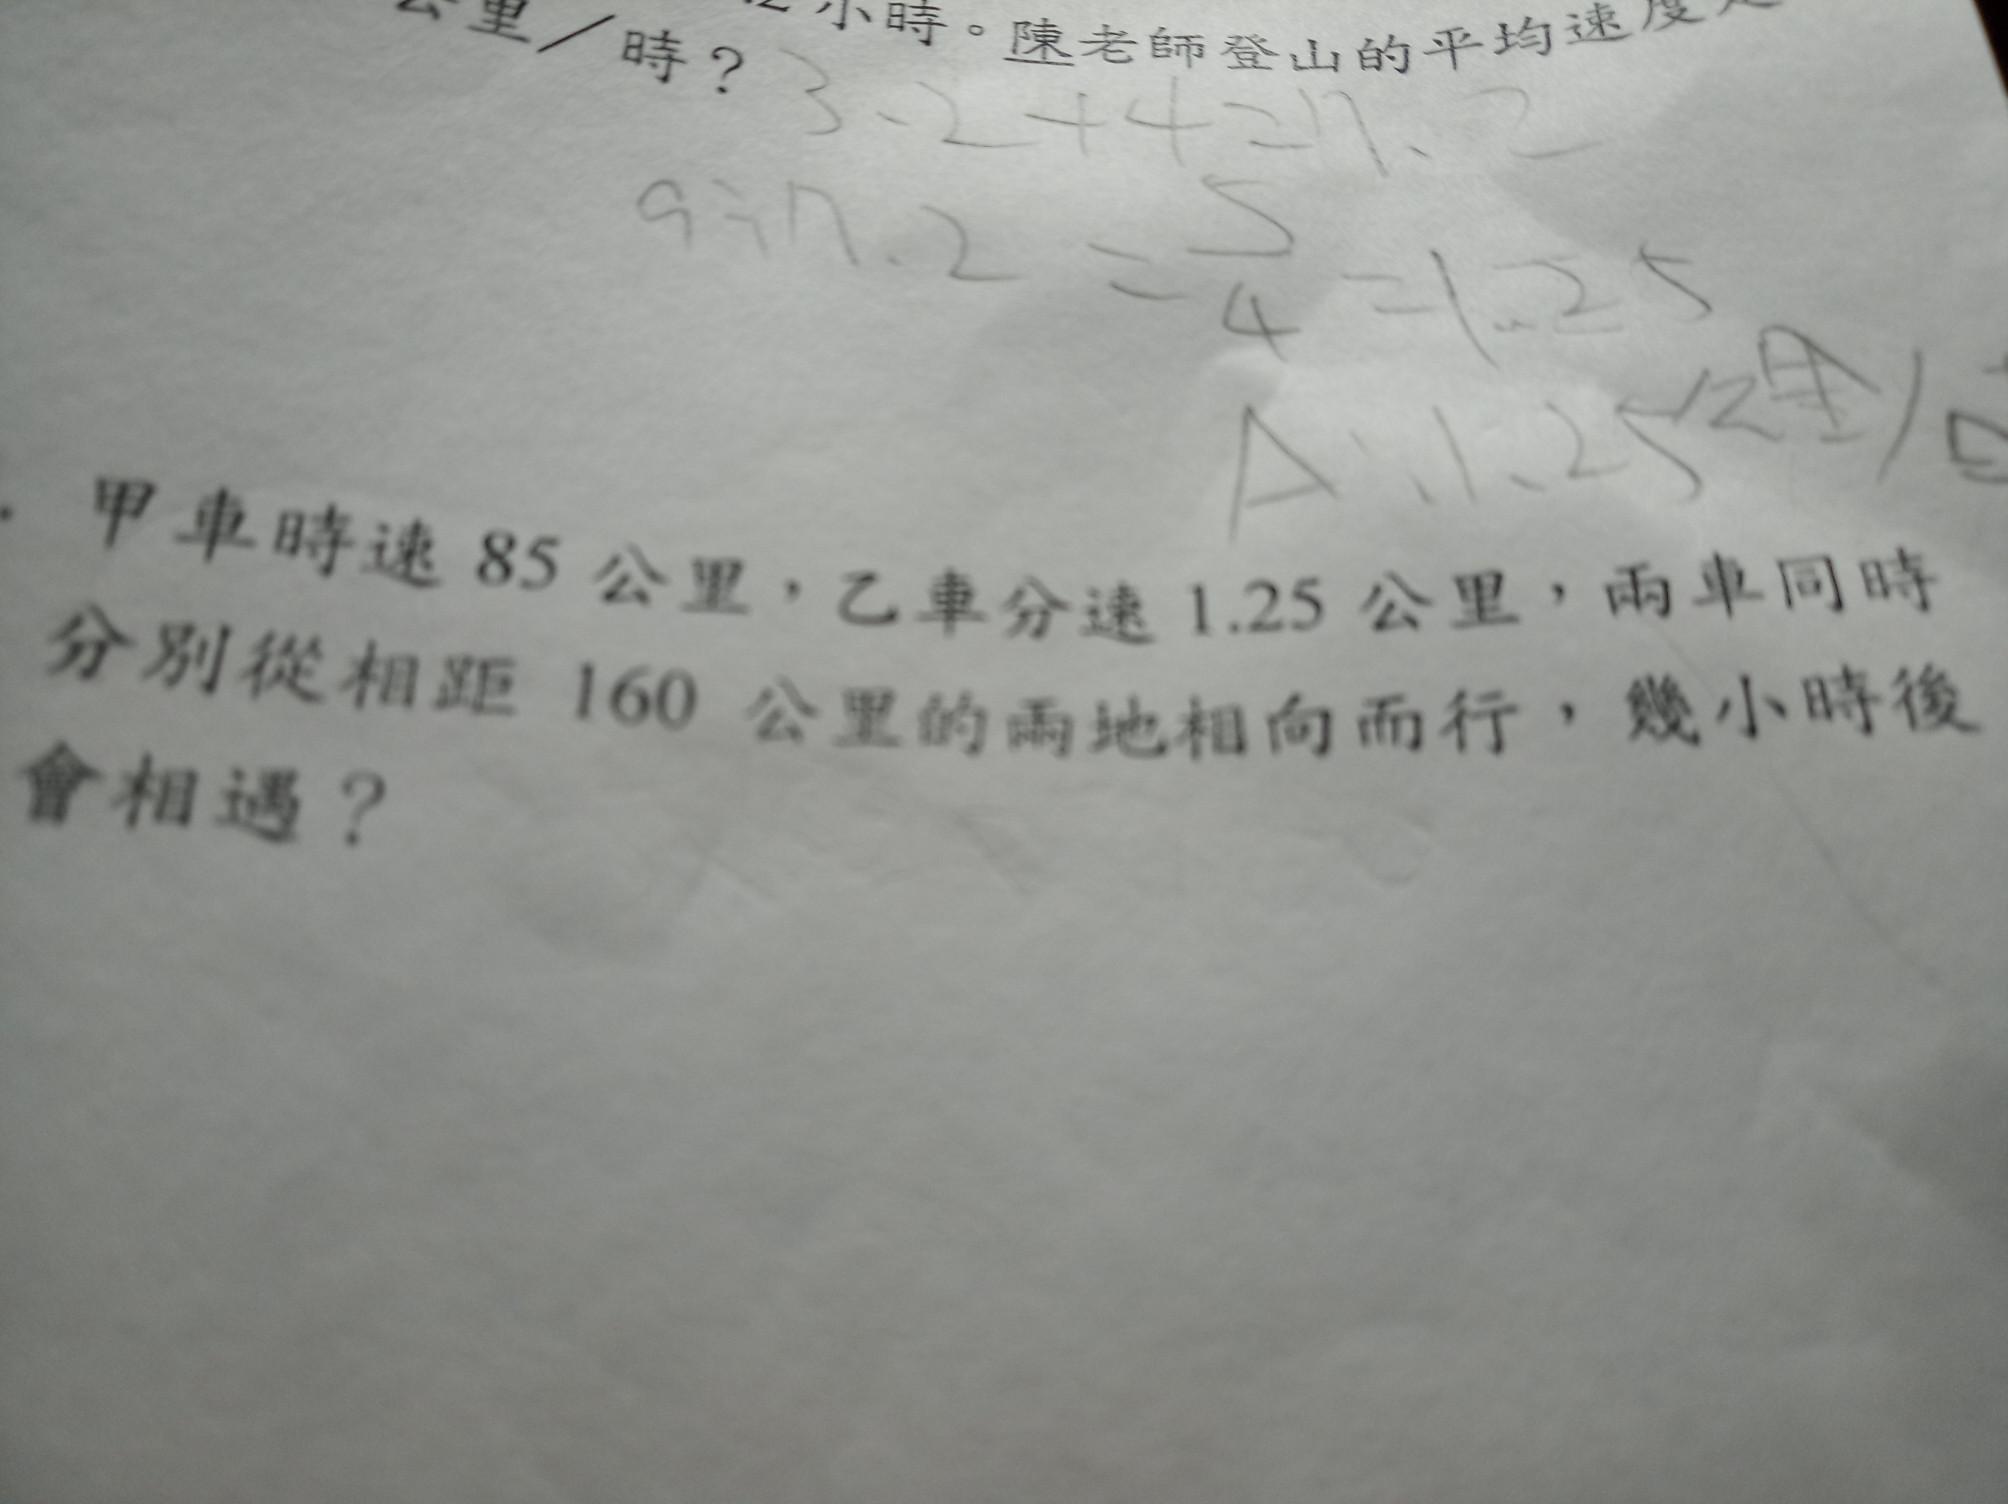 小時。陳老師登山的平均速度
公里／時？
3.2+4=7.2
9÷7.2=5/4=1.25
A:1.25
甲車時速 85 公里，乙車分速 1.25 公里，兩車同時
分別從相距 160 公里的兩地相向而行，幾小時後
會相遇？